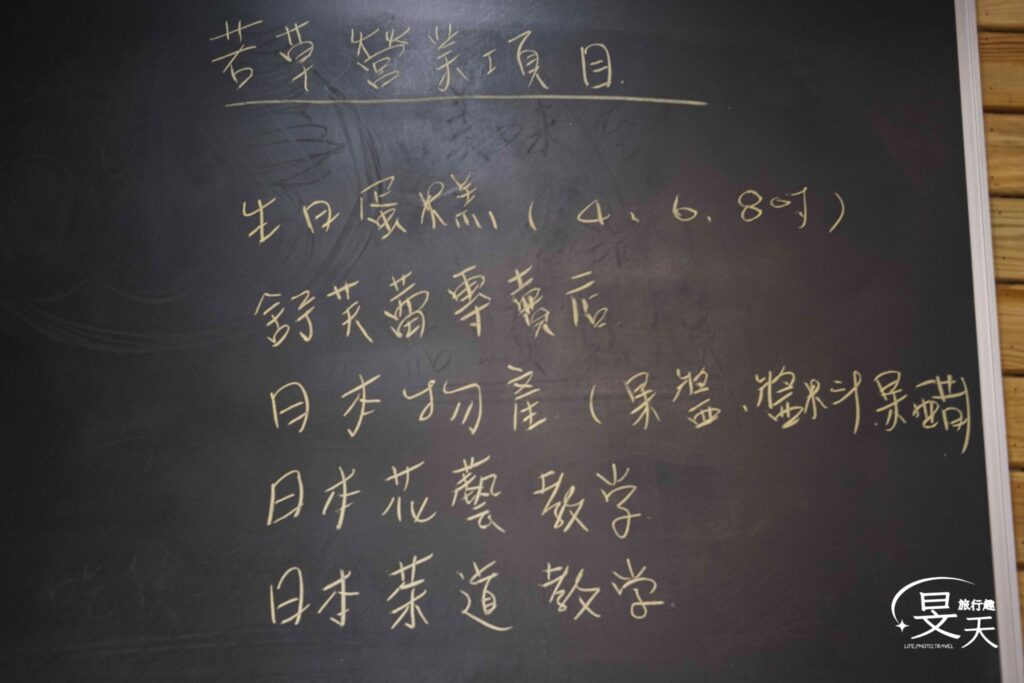 若草營業項目
生日蛋糕(4、6、8吋)
舒芙蕾專賣店
日本物產(果醬、醬料果醋)
日本花藝教学
日本茶道教学
旻天
旅行趣
LIFE,PHOTO,TRAVEL